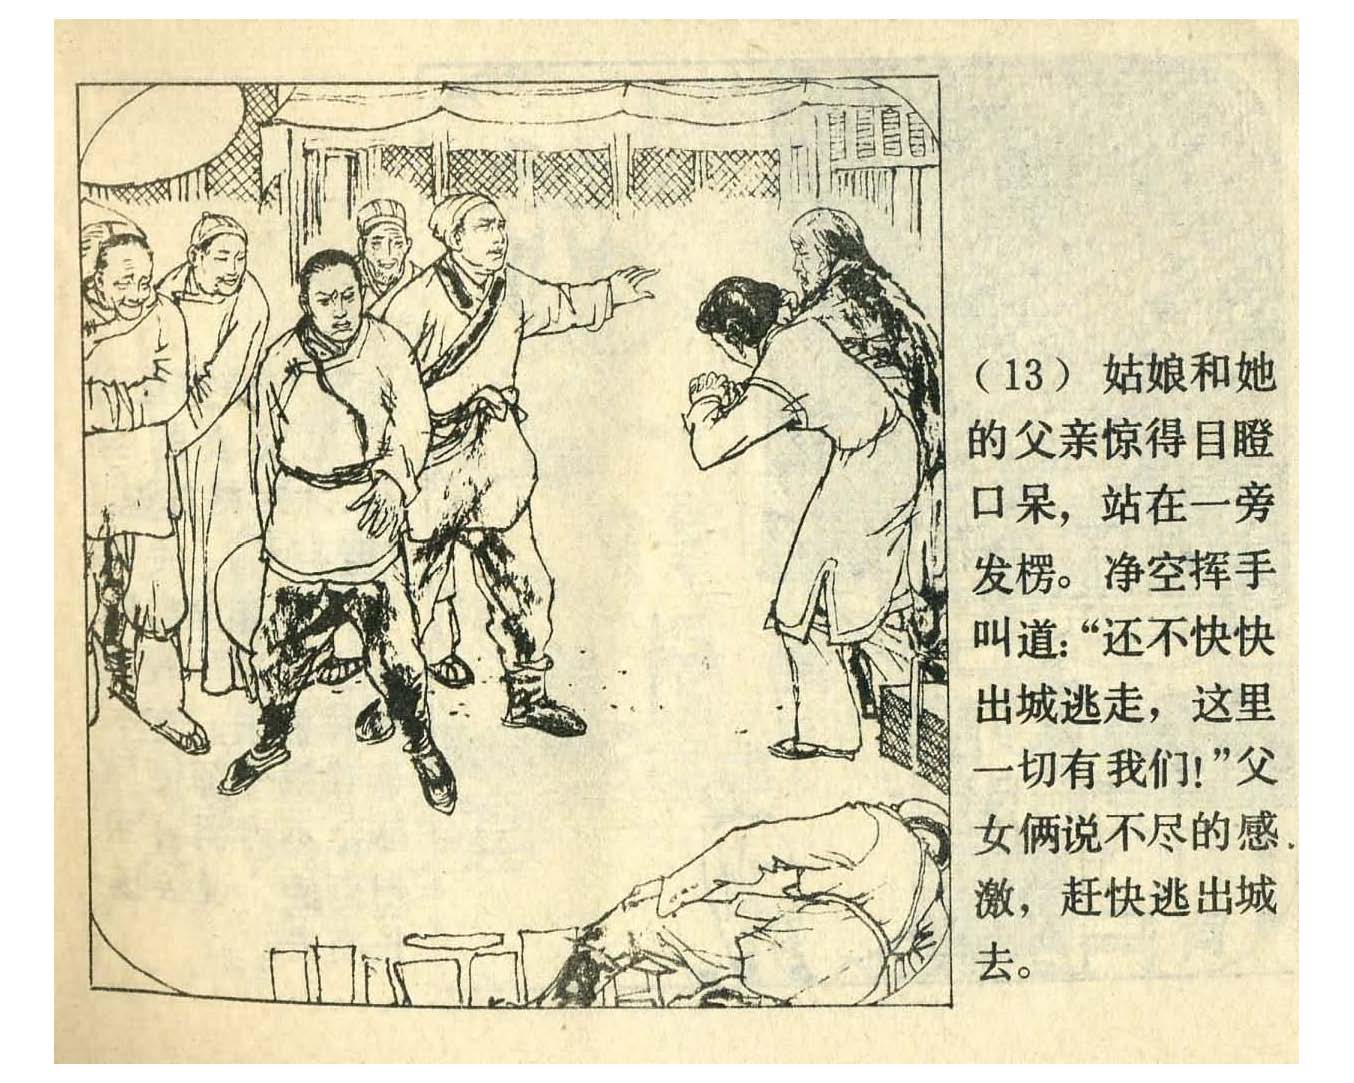 （13）姑娘和她
的父亲惊得目瞪
口呆，站在一旁
发楞。净空挥手
叫道：“还不快快
出城逃走，这里
一切有我们！”父
女俩说不尽的感
激，赶快逃出城
去。